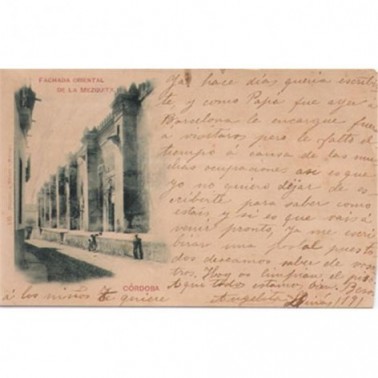 FACHADA ORIENTAL
DE LA MEZQUITA
CÓRDOBA
Ya hace días queria escribir
te, y como Papá fue ayer á
Barcelona le encargue fuera
á visitaros pero le falto el
tiempo á causa de las mu
chas ocupaciones asi es que
yo no quiero dejar de es
cribirte para saber como
estais y si es que vais á
venir pronto, Ya me escri
biras una postal pues to
dos deseamos saber de voso
tros. Hoy os
Aqui todos estamos bien. Besos
á los niños Te quiere Angelita